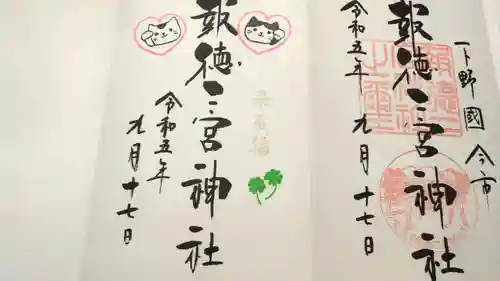 下野國 今市
報徳二宮神社
令和五年 九月十七日
報徳二宮神社
令和五年
九月十七日